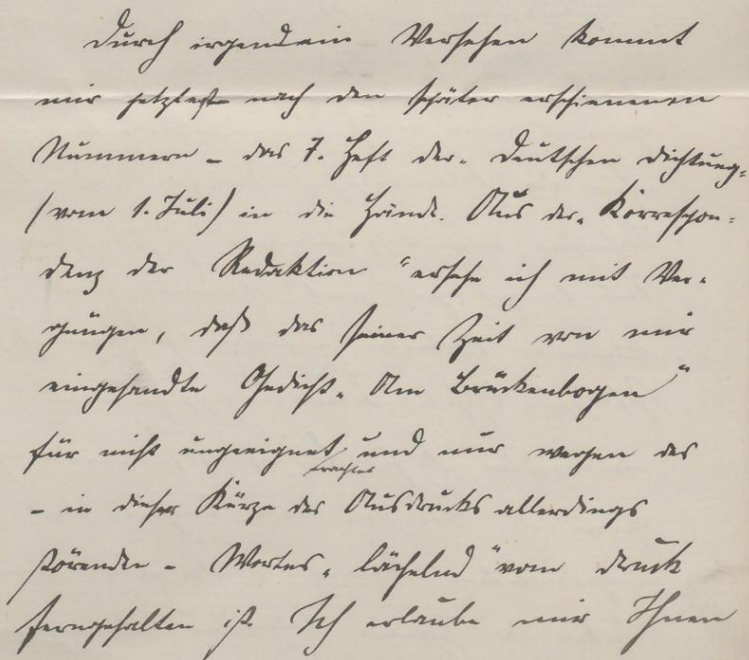 Durch irgendein Versehen kommt
mir jetzt erst nach den später erschienenen
Nummern – das 7. Heft der „Deutschen Dichtung"
(vom 1. Juli) in die Hände. Aus der „Korrespon-
denz der Redaktion" ersehe ich mit Ver-
gnügen, daß das seiner Zeit von mir
eingesandte Gedicht „Am Brückenbogen"
für nicht ungeeignet erachtet und nur wegen des
– in dieser Kürze des Ausdrucks allerdings
störenden – Wortes „lächelnd" vom Druck
ferngehalten ist. Ich erlaube mir Ihnen